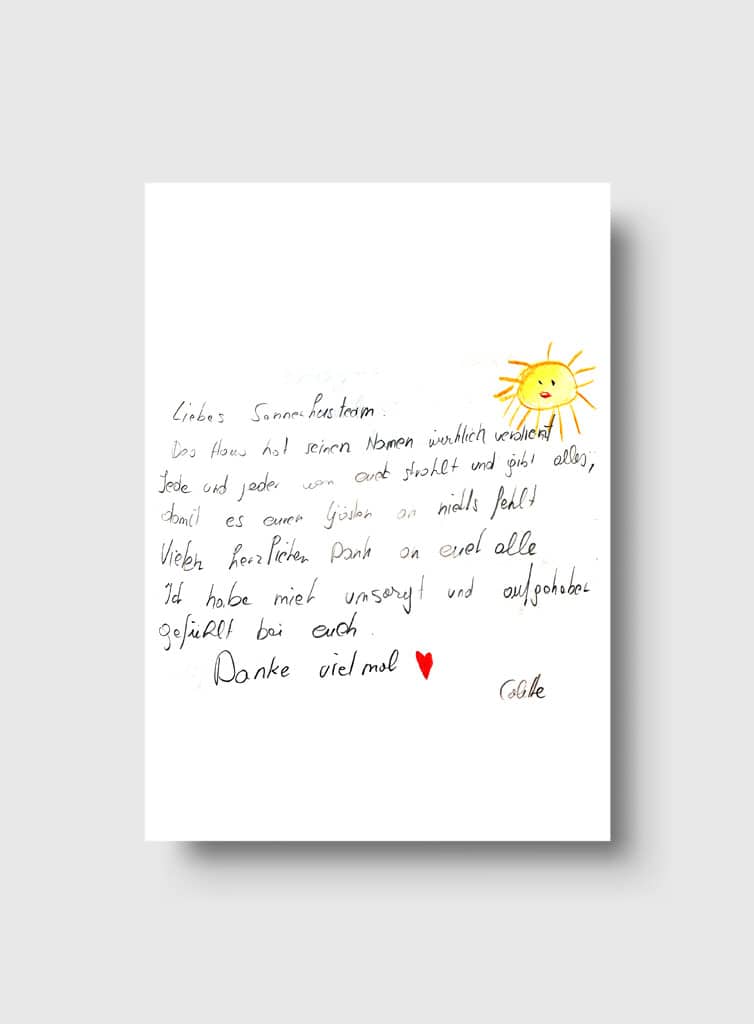 Liebes Sonnehusteam.
Das Haus hat seinen Namen wirklich verdient
Jede und jeder von euch strahlt und gibt alles,
damit es euren Gästen an nichts fehlt
Vielen herzlichen Dank an euch alle
Ich habe mich umsorgt und aufgehoben
gefühlt bei euch.
Danke vielmal
Colette